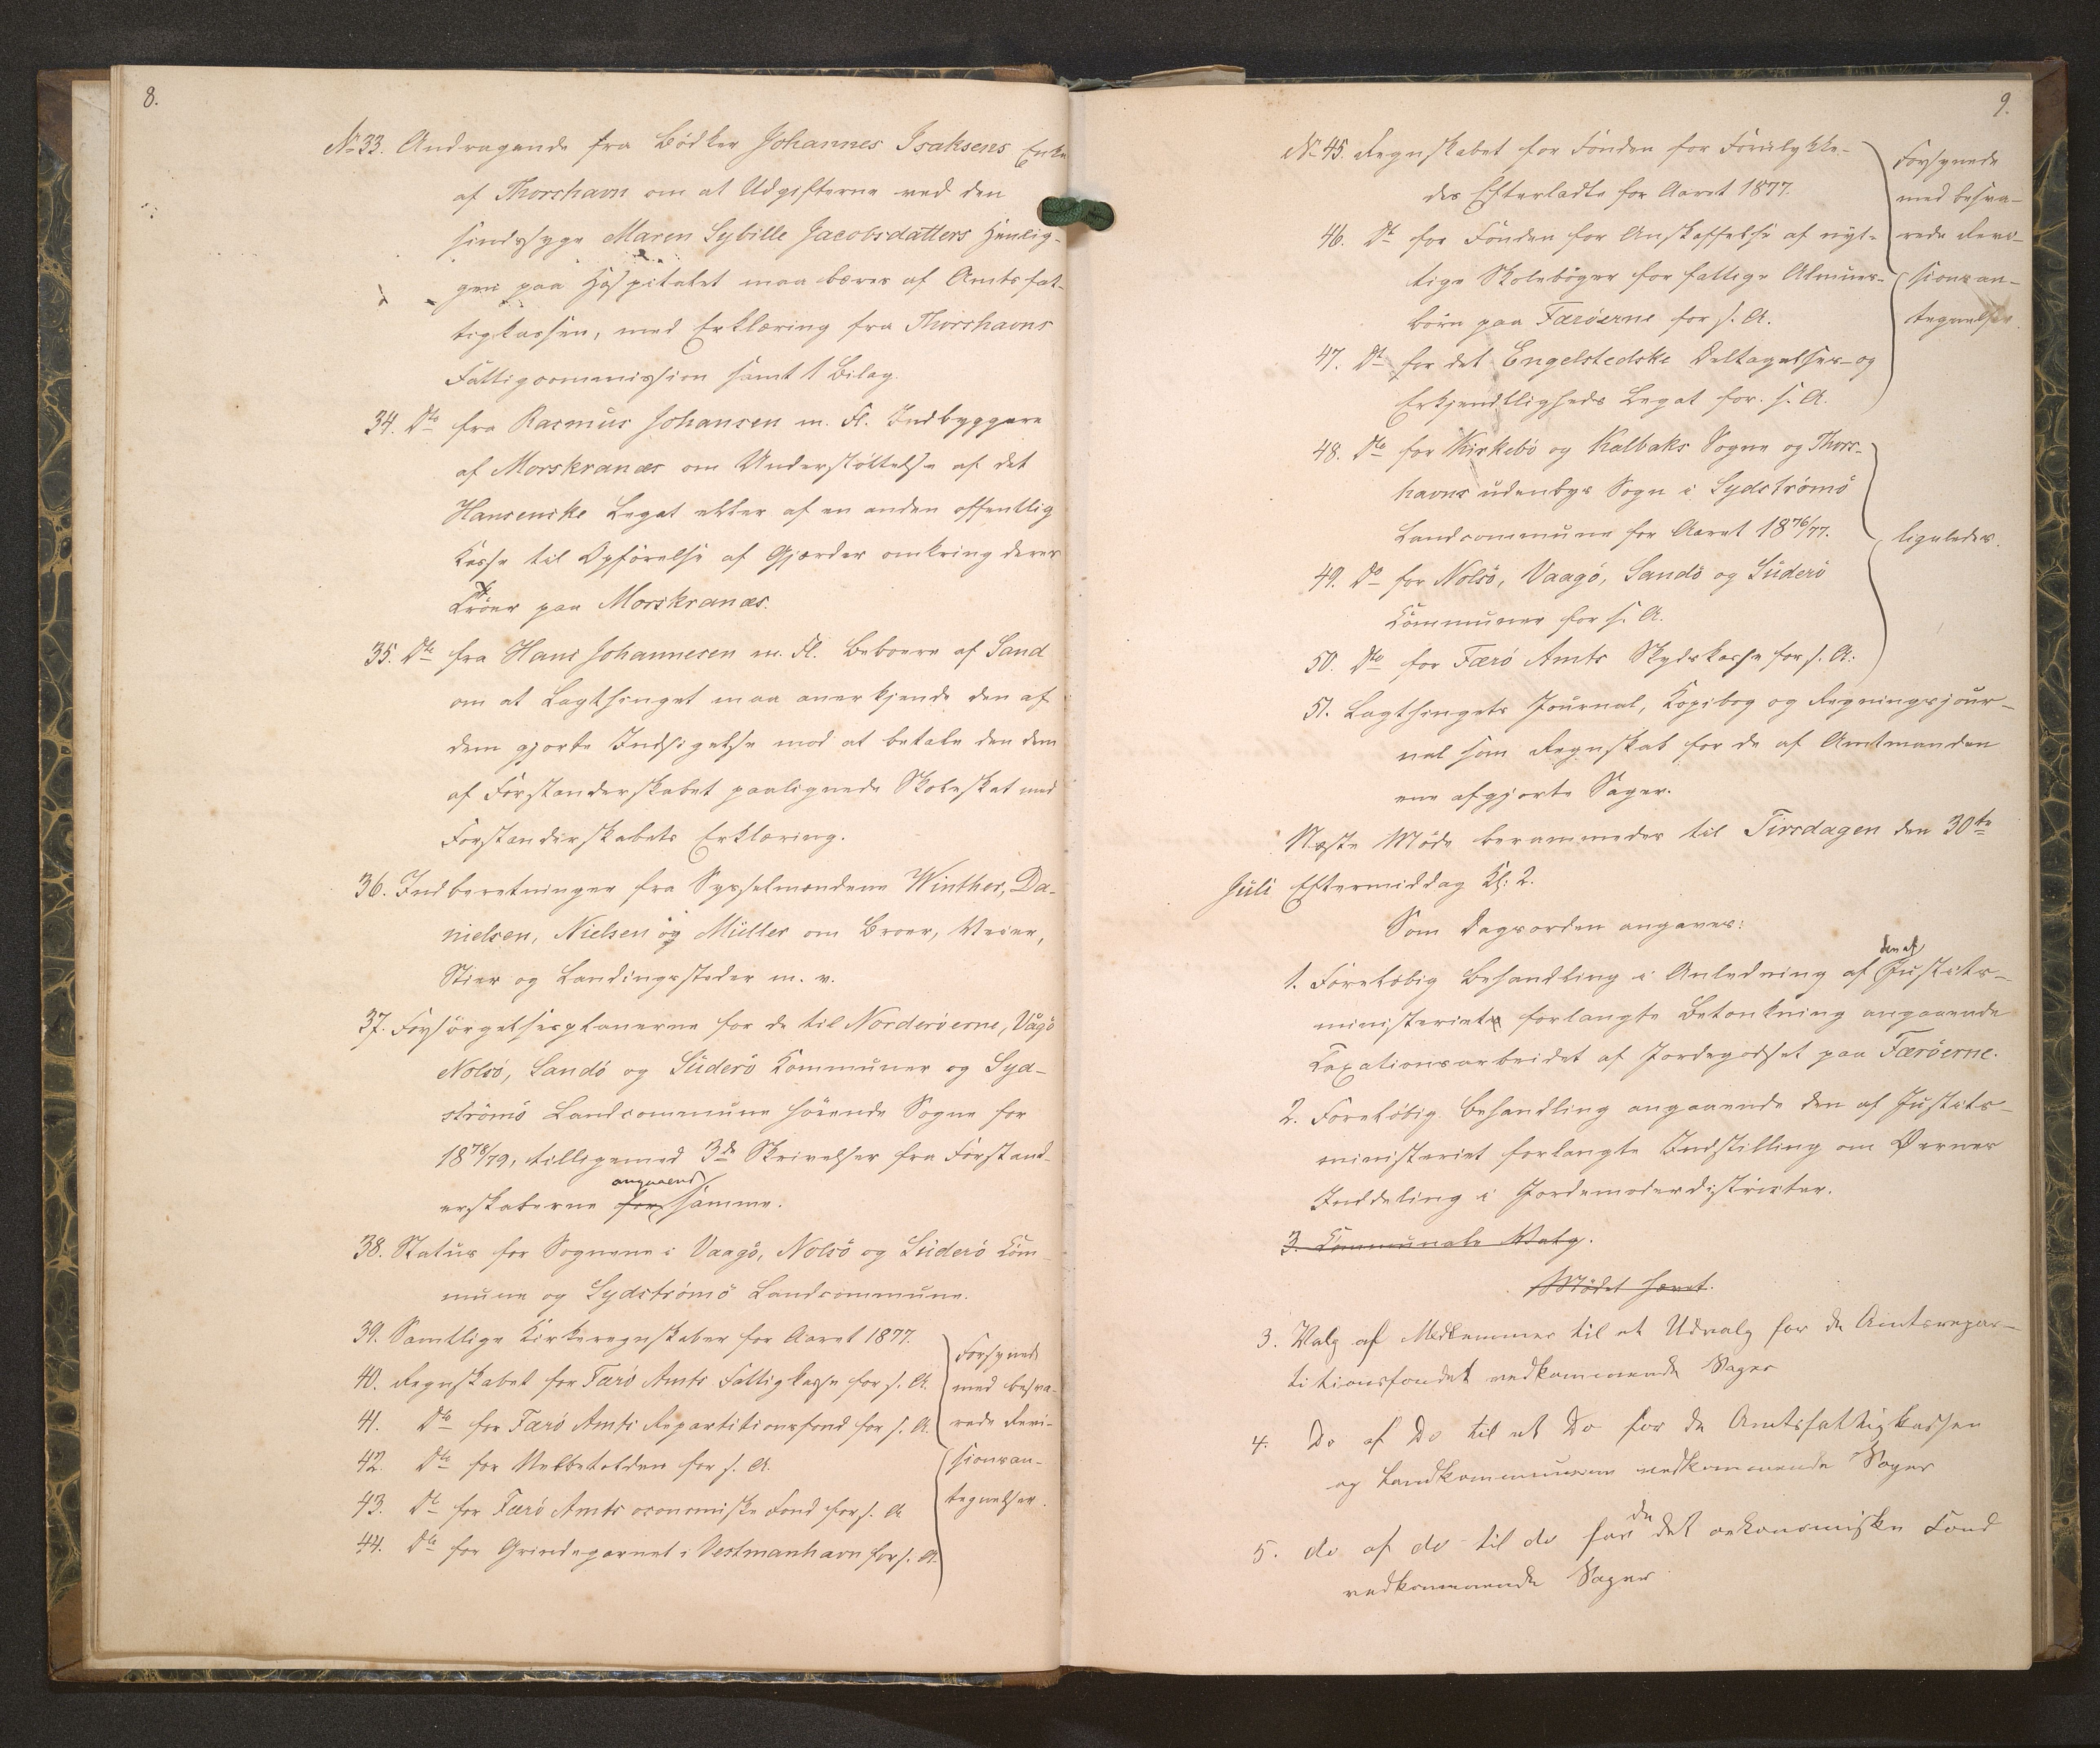 8.
No 33. Andragende fra Bødker Johannes Isaksens Enke
af Thorshavn om at Udgifterne ved den
sindssyge Maren Sybille Jacobsdatters Henlig-
gen paa Hospitalet maa bæres af Amtsfat-
tigkassen, med Erklæring fra Thorshavns
Fattigcommission samt 1 Bilag.
34. Dto fra Rasmus Johansen m. Fl. Indbyggere
af Morskranæs om Understøttelse af det
Hansenske Legat eller af en anden offentlig
Kasse til Opførelse af Gjærder omkring deres
Trøer paa Morskranæs.
35. Dto fra Hans Johannesen m. Fl. Beboere af Sand
om at Lagthinget maa anerkjende den af
dem gjorte Indsigelse mod at betale den dem
af Forstanderskabet paalignede Skoleskat med
Forstanderskabets Erklæring.
36. Indberetninger fra Sysselmændene Winther, Da-
nielsen, Nielsen og Müller om Broer, Veier,
Stier og Landingssteder m. v.
37. Forsørgelsesplanerne for de til Norderøerne, Vågø
Nolsø, Sandø og Suderø Kommuner og Syd-
strømø Landcommune hørende Sogne for
1878/79, tilligemed 3de Skrivelser fra Forstand-
angaaende
erskaberne for samme.
38. Status for Sognene i Vaagø, Nolsø og Suderø Kom-
mune og Sydstrømø Landcommune.
39. Samtlige Kirkeregnskaber for Aaret 1877.
40. Regnskabet for Færø Amts Fattigkasse for s. A.
41. Dto for Færø Amts Repartitionsfond for s. A.
42. Dto for Nebbetolden for s. A.
43. Dto for Færø Amts oconomiske Fond for s. A
44. Dto for Grindegarnet i Vestmanhavn for s. A.
Forsynede
med besva-
rede Revi-
sionsan-
tegnelser.
9.
No 45. Regnskabet for Fonden for Forulykke-
des Efterladte for Aaret 1877.
46. Dto for Fonden for Anskaffelse af nyt-
tige Skolebøger for fattige Almues-
børn paa Færøerne for s. A.
47. Dto for det Engelstedske Deltagelses- og
Erkjendtligheds Legat for s. A.
Forsynede
med besva-
rede Revi-
sionsan-
tegnelser.
48. Dto for Kirkebø og Kalbaks Sogne og Thors-
havns udenbys Sogn i Sydstrømø
Landcommune for Aaret 1876/77.
49. Do for Nolsø, Vaagø, Sandø og Suderø
Kommuner for s. A.
50. Dto for Færø Amts Skydskasse for s. A.
ligeledes.
51. Lagthingets Journal, Kopibog og Regningsjour-
nal som Regnskab for de af Amtmanden
ene afgjorte Sager.
Næste Møde berammedes til Tirsdagen den 30te
Juli Eftermiddag Kl: 2.
Som Dagsorden angaves:
den af
1. Foreløbig Behandling i Anledning af Justits-
ministeriet forlangte Betænkning angaaende
Taxationsarbeidet af Jordegodset paa Færøerne.
2. Foreløbig Behandling angaaende den af Justits-
ministeriet forlangte Indstilling om Øernes
Inddeling i Jordemoderdistricter.
3. Communale Valg.
Mødet hævet.
3. Valg af Medlemmer til et Udvalg for de Amtsrepar-
titionsfondet vedkommende Sager
4. Do af Do til et Do for de Amtsfattigkassen
og Landkommunerne vedkommende Sager
de
5. do af do til do for det oekonomiske Fond
vedkommende Sager